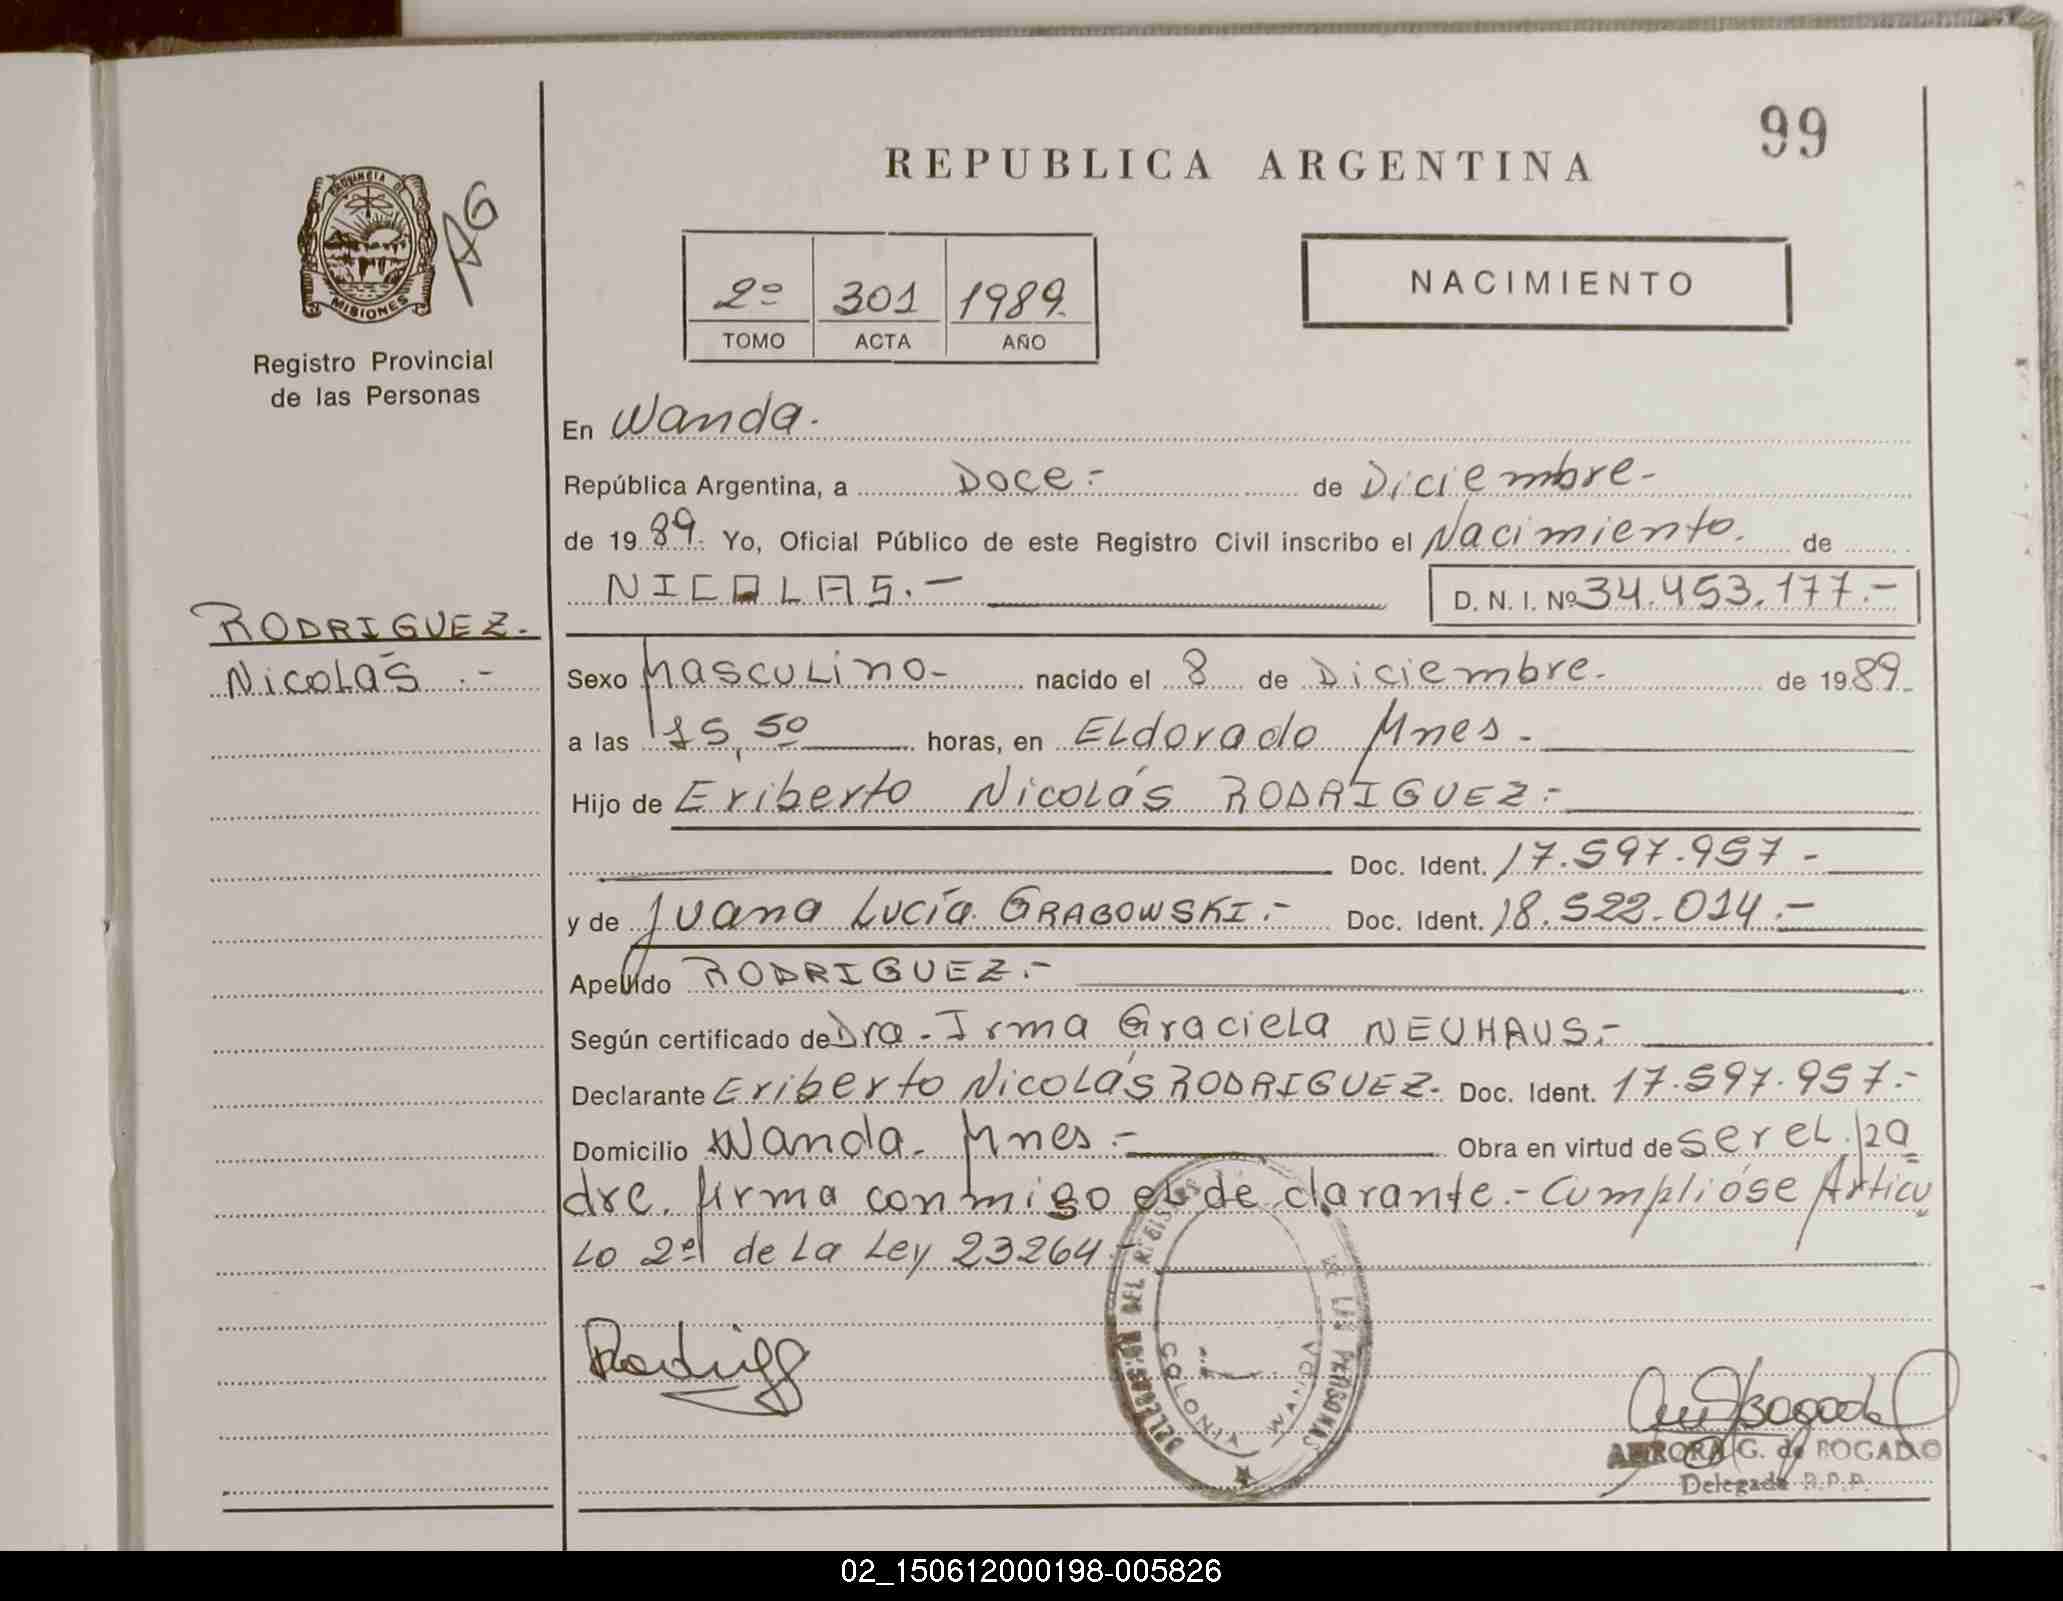 99
REPUBLICA ARGENTINA
PROVINCIA DE
MISIONES
AG
Registro Provincial
de las Personas
2º 301 1989.
TOMO ACTA AÑO
NACIMIENTO
En Wanda.
República Argentina, a Doce.- de Diciembre.-
de 1989. Yo, Oficial Público de este Registro Civil inscribo el Nacimiento. de
NICOLAS.- D. N. I. Nº 34.453.177.-
RODRIGUEZ.-
Nicolás .-
Sexo Masculino- nacido el 8 de Diciembre. de 1989.
a las 15,50 horas, en Eldorado Mnes.-
Hijo de Eriberto Nicolás RODRIGUEZ.-
Doc. Ident. 17.597.957.-
y de Juana Lucía GRABOWSKI.- Doc. Ident. 18.522.014.-
Apellido RODRIGUEZ.-
Según certificado de Dra. Irma Graciela NEUHAUS.-
Declarante Eriberto Nicolás RODRIGUEZ. Doc. Ident. 17.597.957.-
Domicilio Wanda. Mnes.- Obra en virtud de ser el pa
dre. firma conmigo el declarante.- Cumplióse Artícu
lo 2º de la Ley 23264.-
DELEGACION DEL REGISTRO DE LAS PERSONAS
COLONIA WANDA
AURORA G. de BOGADO
Delegada R.P.P.
02_150612000198-005826